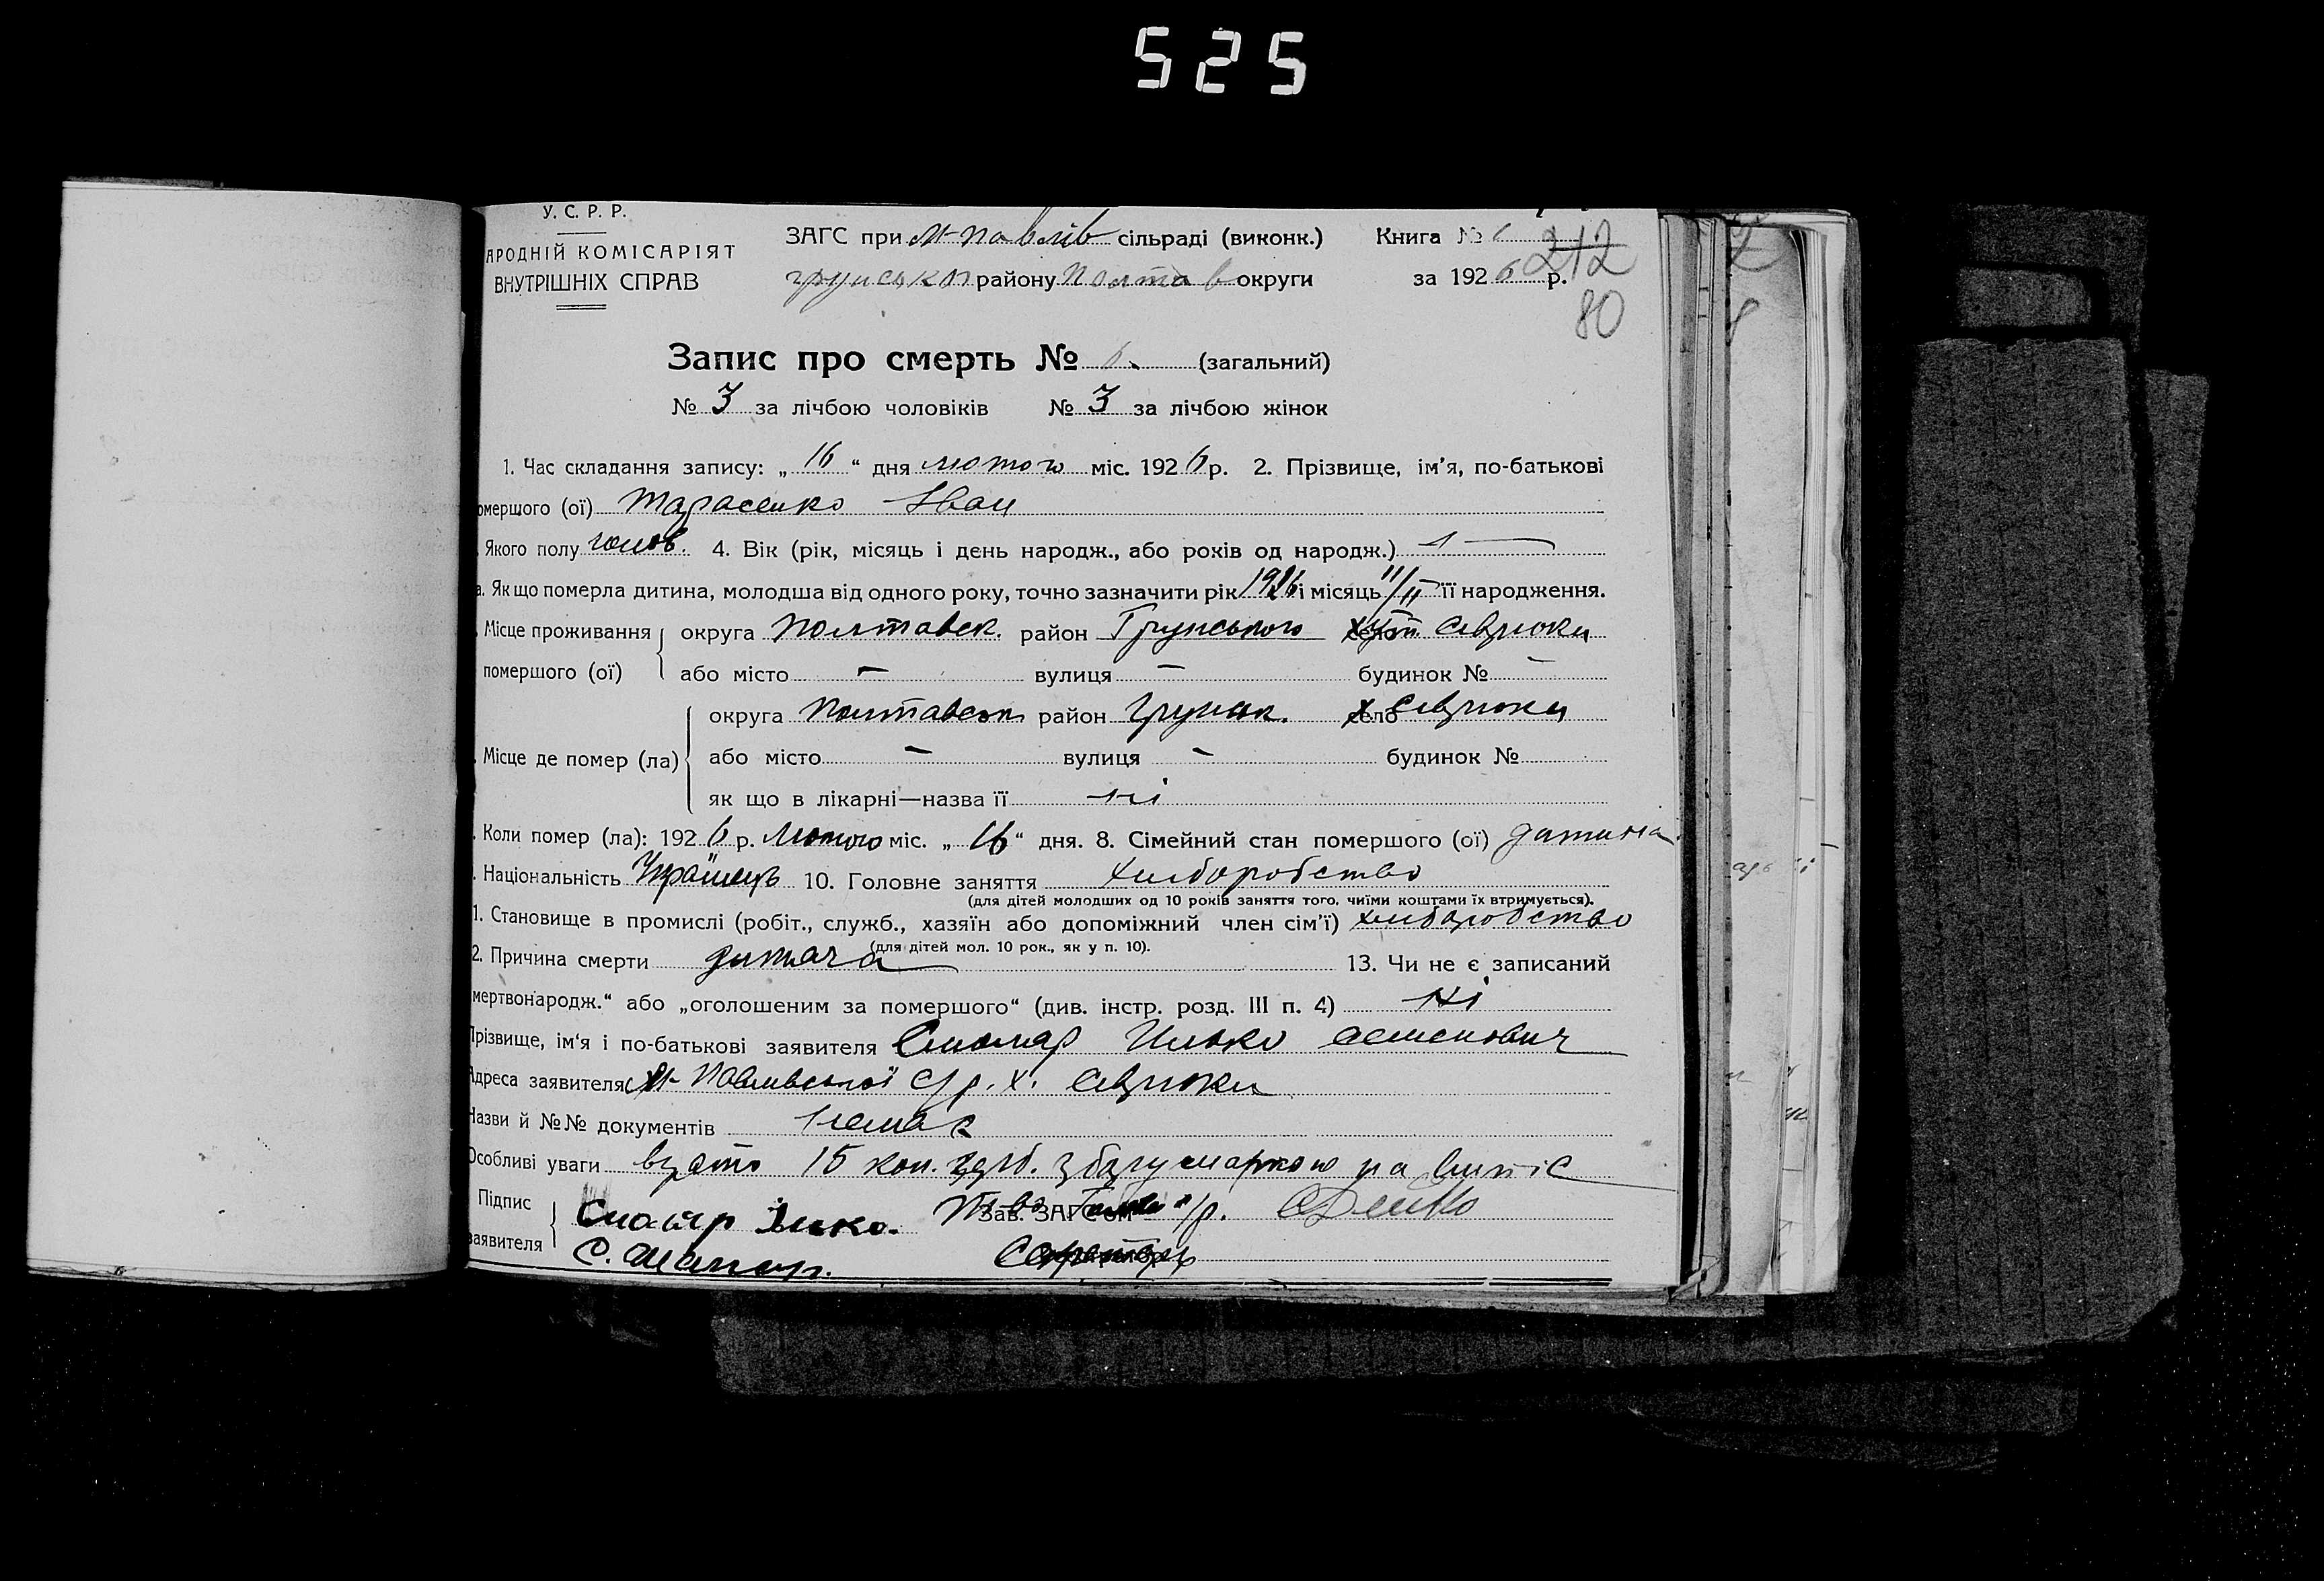 525
У. С. Р. Р.
АРОДНІЙ КОМІСАРІЯТ
ВНУТРІШНІХ СПРАВ
ЗАГС при М-Павлів сільраді (виконк.) Книга №
грунського району Полтав округи за 1926 р.
212
80
Запис про смерть № 6. (загальний)
№ 3 за лічбою чоловіків № 3 за лічбою жінок
1. Час складання запису: „ 16 “ дня лютого міс. 1926 р. 2. Прізвище, ім'я, по-батькові
омершого (ої) Тарасенко Іван
Якого полу чолов. 4. Вік (рік, місяць і день народж., або років од народж.) —
а. Якщо померла дитина, молодша від одного року, точно зазначити рік 1926 і місяць 11/II її народження.
Місце проживання округа Полтавск. район Грунського хут Сиврюки
помершого (ої) або місто — вулиця — будинок № —
округа Полтавськ район Грунськ. х село Сиврюки
Місце де помер (ла) або місто — вулиця — будинок №
як що в лікарні—назва її ні
Коли помер (ла): 1926 р. Лютого міс. „ 16 “ дня. 8. Сімейний стан помершого (ої) дитина
. Національність Українець 10. Головне заняття хліборобство
(для дітей молодших од 10 років заняття того, чиїми коштами їх втримується).
1. Становище в промислі (робіт., служб., хазяїн або допоміжний член сім'ї) хліборобство
(для дітей мол. 10 рок., як у п. 10).
2. Причина смерти дитяча 13. Чи не є записаний
мертвонародж.“ або „оголошеним за помершого“ (див. інстр. розд. III п. 4) ні
Прізвище, ім'я і по-батькові заявителя Илько
Адреса заявителя М-Павлівської С/р. х. Сиврюки
Назви й №№ документів немає
Особливі уваги взято 15 коп. маркою на випіс
Підпис Ілько. Зав. ЗАГС'ом
заявителя Секретарь